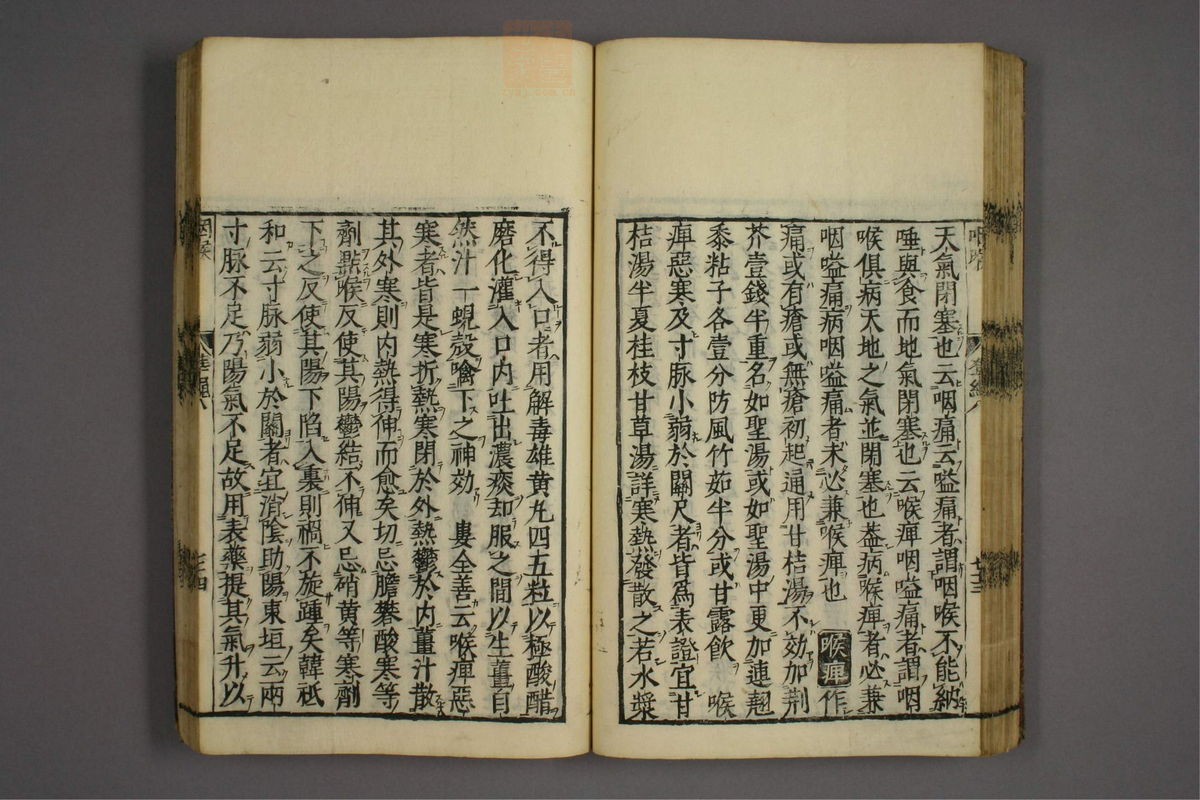 天氣閉塞也云咽痛云嗌痛者謂咽喉不能納
唾與食而地氣閉塞也云喉痺咽嗌痛者謂咽
喉俱病天地之氣並閉塞也盖病喉痺者必兼
咽嗌痛病咽嗌痛者未必兼喉痺也 喉痺 作
痛或有瘡或無瘡初起通用甘桔湯不効加荆
芥壹錢半重名如聖湯或如聖湯中更加連翹
黍粘子各壹分防風竹茹半分或甘露飲 喉
痺惡寒及寸脉小弱於關尺者皆爲表證宜甘
桔湯半夏桂枝甘草湯詳寒熱發散之若水漿
七十三
不得入口者用解毒雄黄丸四五粒以極酸醋
磨化灌入口內吐出濃痰却服之間以生薑自
然汁一蜆殼噙下之神効 婁全善云喉痺惡
寒者皆是寒折熱寒閉於外熱鬱於內薑汁散
其外寒則內熱得伸而愈矣切忌膽礬酸寒等
劑點喉反使其陽鬱結不伸又忌硝黄等寒劑
下之反使其陽下陷入裏則禍不旋踵矣韓祗
和云寸脉弱小於關者宜消陰助陽東垣云兩
寸脉不足乃陽氣不足故用表藥提其氣升以
咽喉
七十四